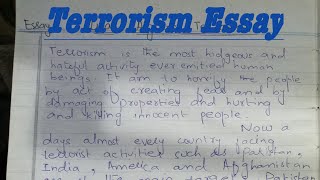 Terrorism Essay
Essay
Terrorism is the most hidgeous and
hateful activity ever emitent human
beings. It aim to horrify the people
by act of creating fear and by
damaging properties and hurting
and killing innocent people.
Now a
days almost every country facing
terrorist activities such as Pakistan,
India, America and Afghanistan
Pakistan